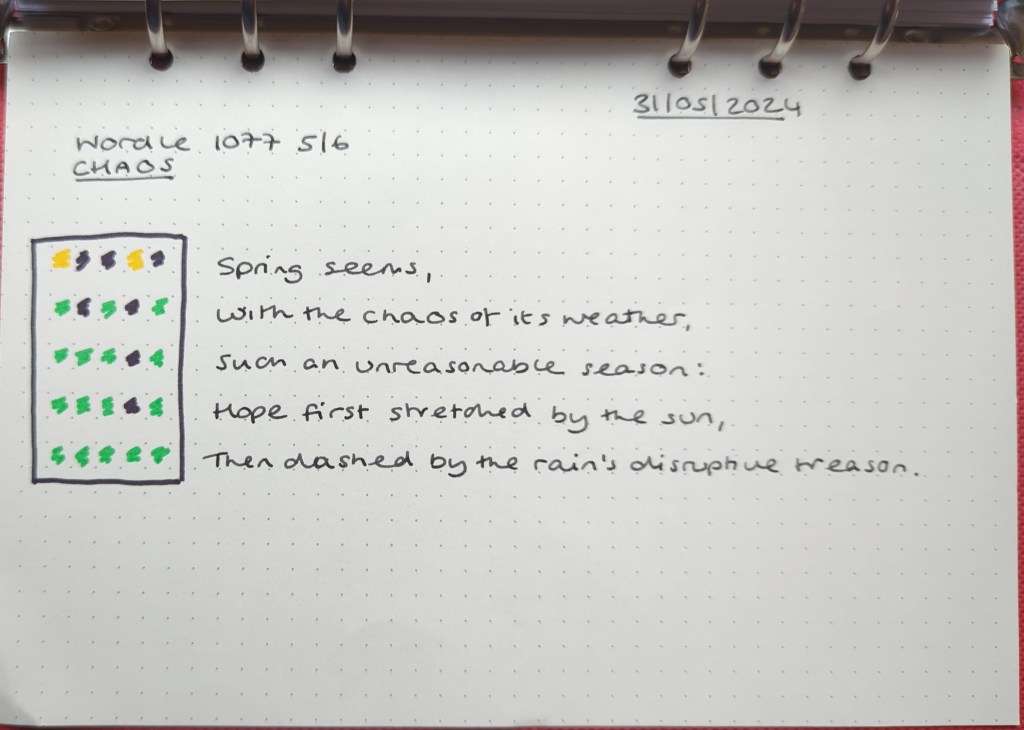 31/05/2024
Wordle 1077 5/6
CHAOS
Spring seems,
with the chaos of its weather,
such an unreasonable season:
Hope first stretched by the sun,
Then dashed by the rain's disruptive treason.